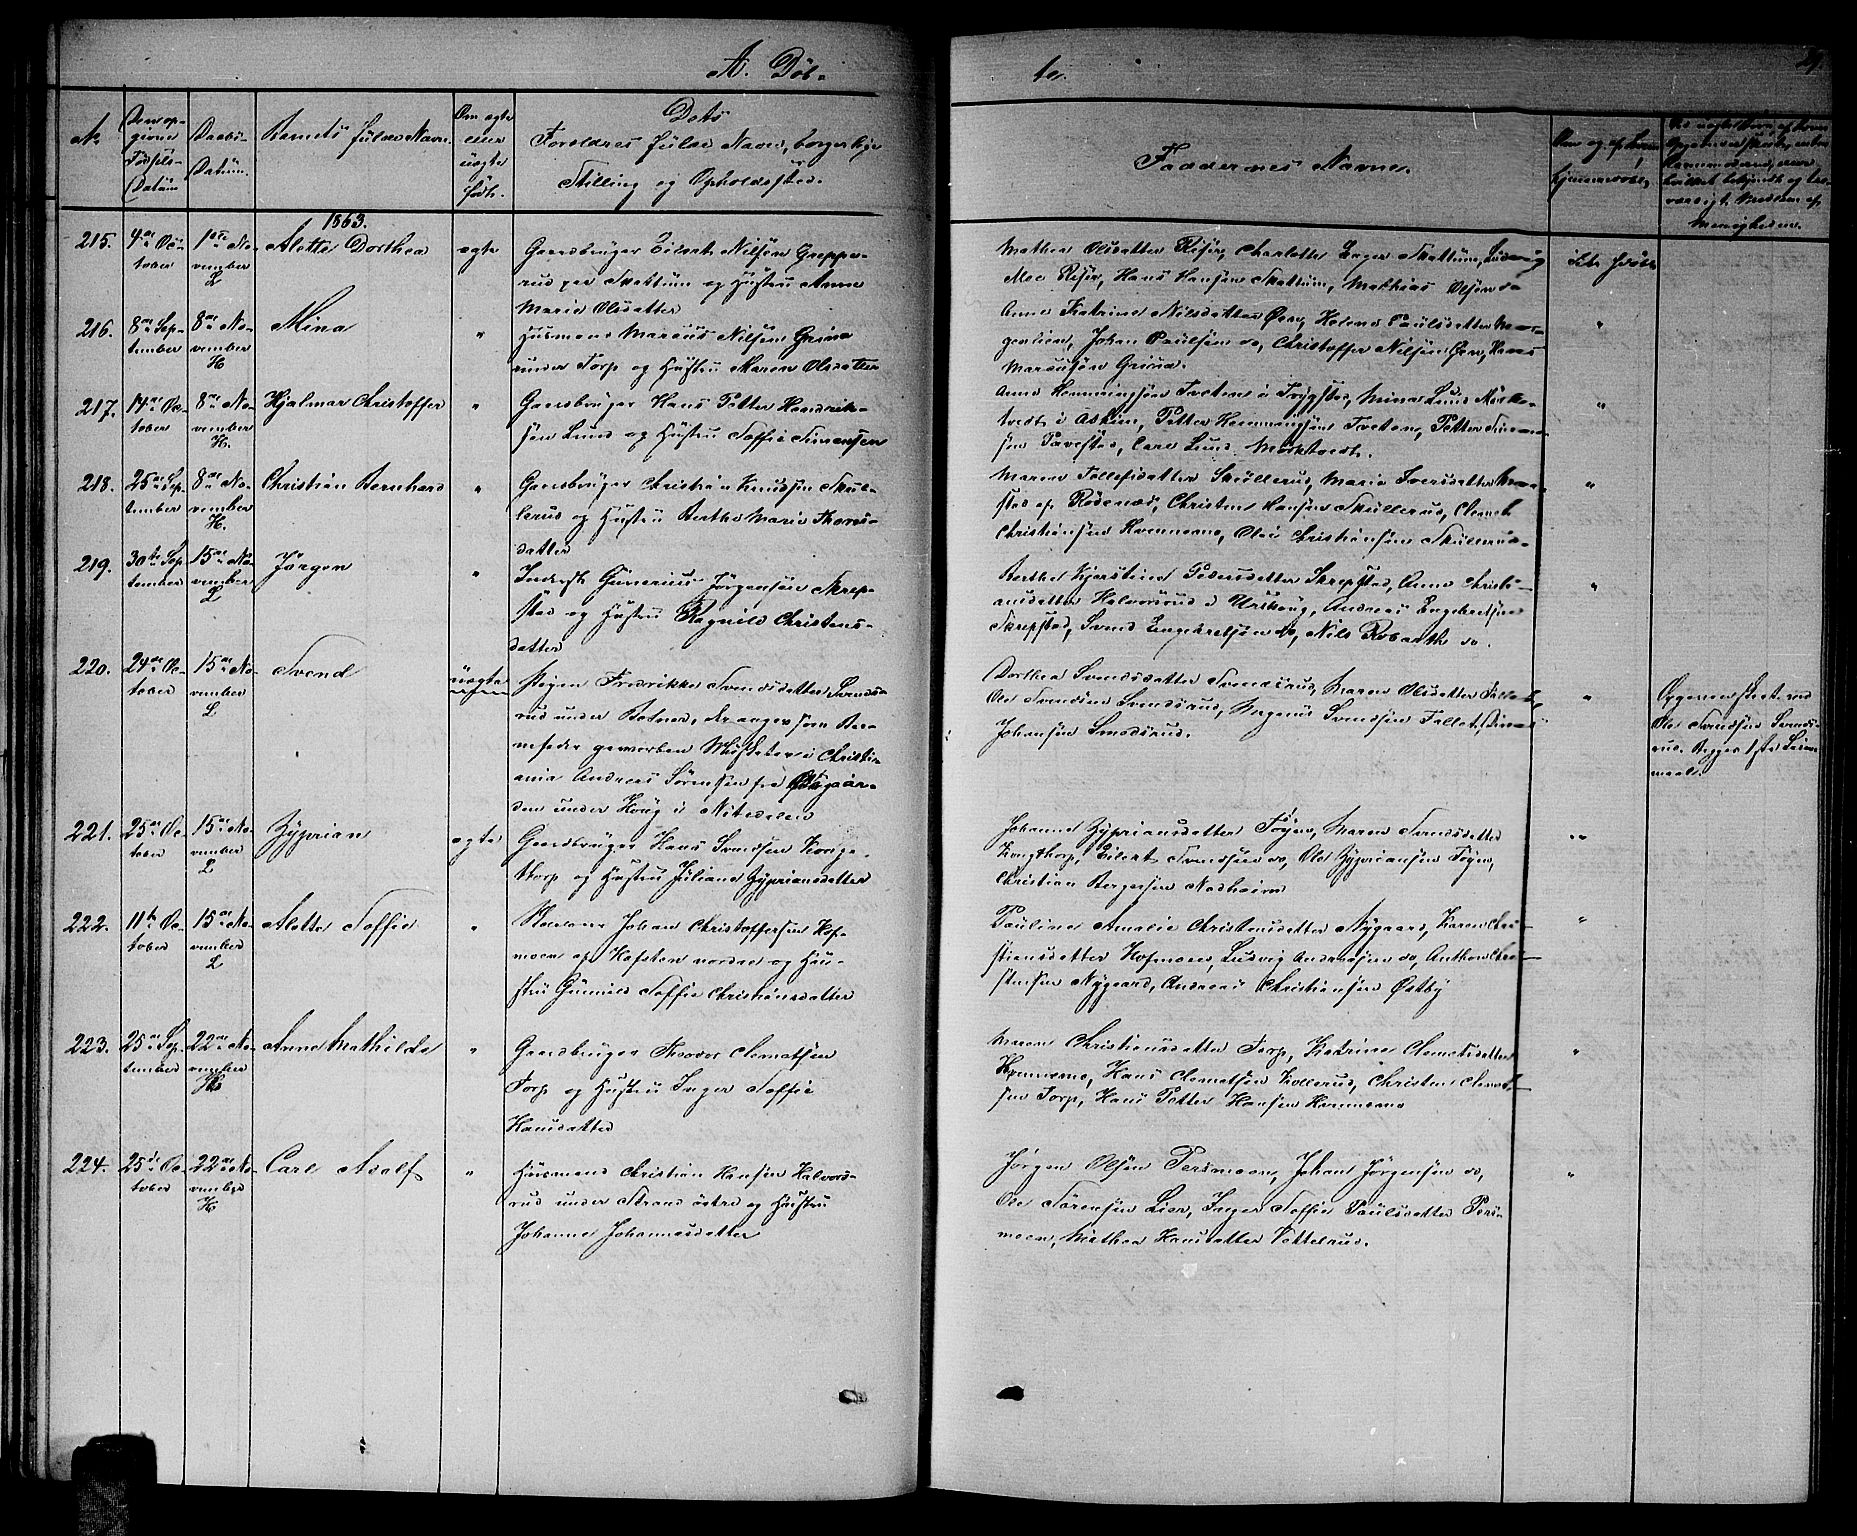 A. Døb-
te.
No
Den op-
givne
Fødsels-
Datum
Daabs-
Datum.
Barnets fulde Navn.
Om ægte
eller
uægte
født.
Dets
Forældres fulde Navne, borgerlige
Stilling og Opholdssted.
Faddernes Navne.
1863.
215.
4de Oc-
tober
1ste No-
vember
L
Alette Dorthea
ægte
Gaardbruger Eilert Nilsen Greppe-
rud paa Skattum og Hustru Anne
Marie Olsdatter
Mathea Olsdatter Riser, Charlotte Inger Skattum, Ludvig
Moe Riser, Hans Hansen Skattum, Mathias Olsen do
216.
8de Sep-
tember
8de No-
vember
H
Mina
"
Husmand Marcus Nilsen Grina
under Torp og Hustru Maren Olsdatter
Anne Katrine Nilsdatter Ørn, Helene Paulsdatter
Johan Paulsen do, Christoffer Nilsen Ørn, Hans
Marcusen Grina.
"
217.
14de Oc-
tober
8de No-
vember
H.
Hjalmar Christoffer
"
Gaardbruger Hans Petter Hendrik-
sen Lund og Hustru Soffie Simensen
Anne Henningsen Tveten i Trygstad, Mina Lund Mørk-
tvedt i Askim, Petter Henningsen Tveten, Petter Simen-
sen Tavestad, Carl Lund Mørktvedt.
"
218.
25de Sep-
tember
8de No-
vember
H.
Christian Bernhard
"
Gaardbruger Christian Knudsen Skul-
lerud og Hustru Berthe Marie Thors-
datter
Maren Tollefsdatter Skullerud, Marie Iversdatter
stad af Rødenæs, Christen Hansen Skullerud, Clemet
Christiansen Kvenmoene, Ole Christiansen Skullerud
"
219.
30te Sep-
tember
15de No-
vember
L
Jørgen
"
Inderst Gunerius Jørgensen Skrep-
stad og Hustru Ragnild Christens-
datter
Berthe Kjerstine Pedersdatter Skrepstad, Anne Christi-
ansdatter Halvorsrud i Urskoug, Andreas Engebretsen
Skrepstad, Svend Engebretsen do, Nils Robarth do.
"
220.
24de Oc-
tober
15de No-
vember
L
Svend
uægte
Pigen Fredrikke Svendsdatter Svends-
rud under Botner, der angav som Bar-
nefader gevorben Musketer i Christi-
ania Andreas Sørensen fra Østgaar-
den under Houg i Nitedalen
Dorthea Svendsdatter Svendsrud, Maren Olsdatter
Ole Svendsen Svendsrud, Magnus Svendsen
Johansen Svendsrud.
"
Egenmeldt ved
Ole Svendsen Svends-
rud. Begges 1ste Leier-
maal.
221.
25de Oc-
tober
15de No-
vember
L
Zyprian
ægte
Gaardbruger Hans Svendsen Konge-
torp og Hustru Juliane Zypriansdatter
Johanne Zypriansdatter Foyn, Maren Svendsdatter
Kongthorp, Eilert Svendsen do, Ole Zypriansen Foyn,
Christian Bergersen
"
222.
11te Oc-
tober
15de No-
vember
L
Alette Soffie
"
Johan Christoffersen Hof-
moen af Hofsten nordre og Hu-
stru Gunnild Soffie Christiansdatter
Pauline Amalie Christensdatter Nygaard, Karen Chri-
stiansdatter Hofmoen, Ludvig Andersen do, Anthon Chri-
stensen Nygaard, Andreas Christiansen Østby
"
223.
25de Sep-
tember
22de No-
vember
H
Anne Mathilde
"
Gaardbruger Thorvor Clemetsen
Torp og Hustru Inger Soffie
Hansdatter
Maren Christiansdatter Torp, Katrine Clemetsdatter
Kvenmoene, Hans Clemetsen Kollerud, Christen Clemet-
sen Torp, Hans Petter Hansen Kvenmoene
"
224.
25de Oc-
tober
22de No-
vember
H
Carl Adolf
"
Husmand Christian Hansen Halvors-
rud under Strand østre og Hustru
Johanne Johannesdatter
Jørgen Olsen Persmoen, Johan Jørgensen do,
Ole Sørensen Lier, Inger Soffie Paulsdatter Pers-
moen, Mathea Hansdatter Vettelrud.
"